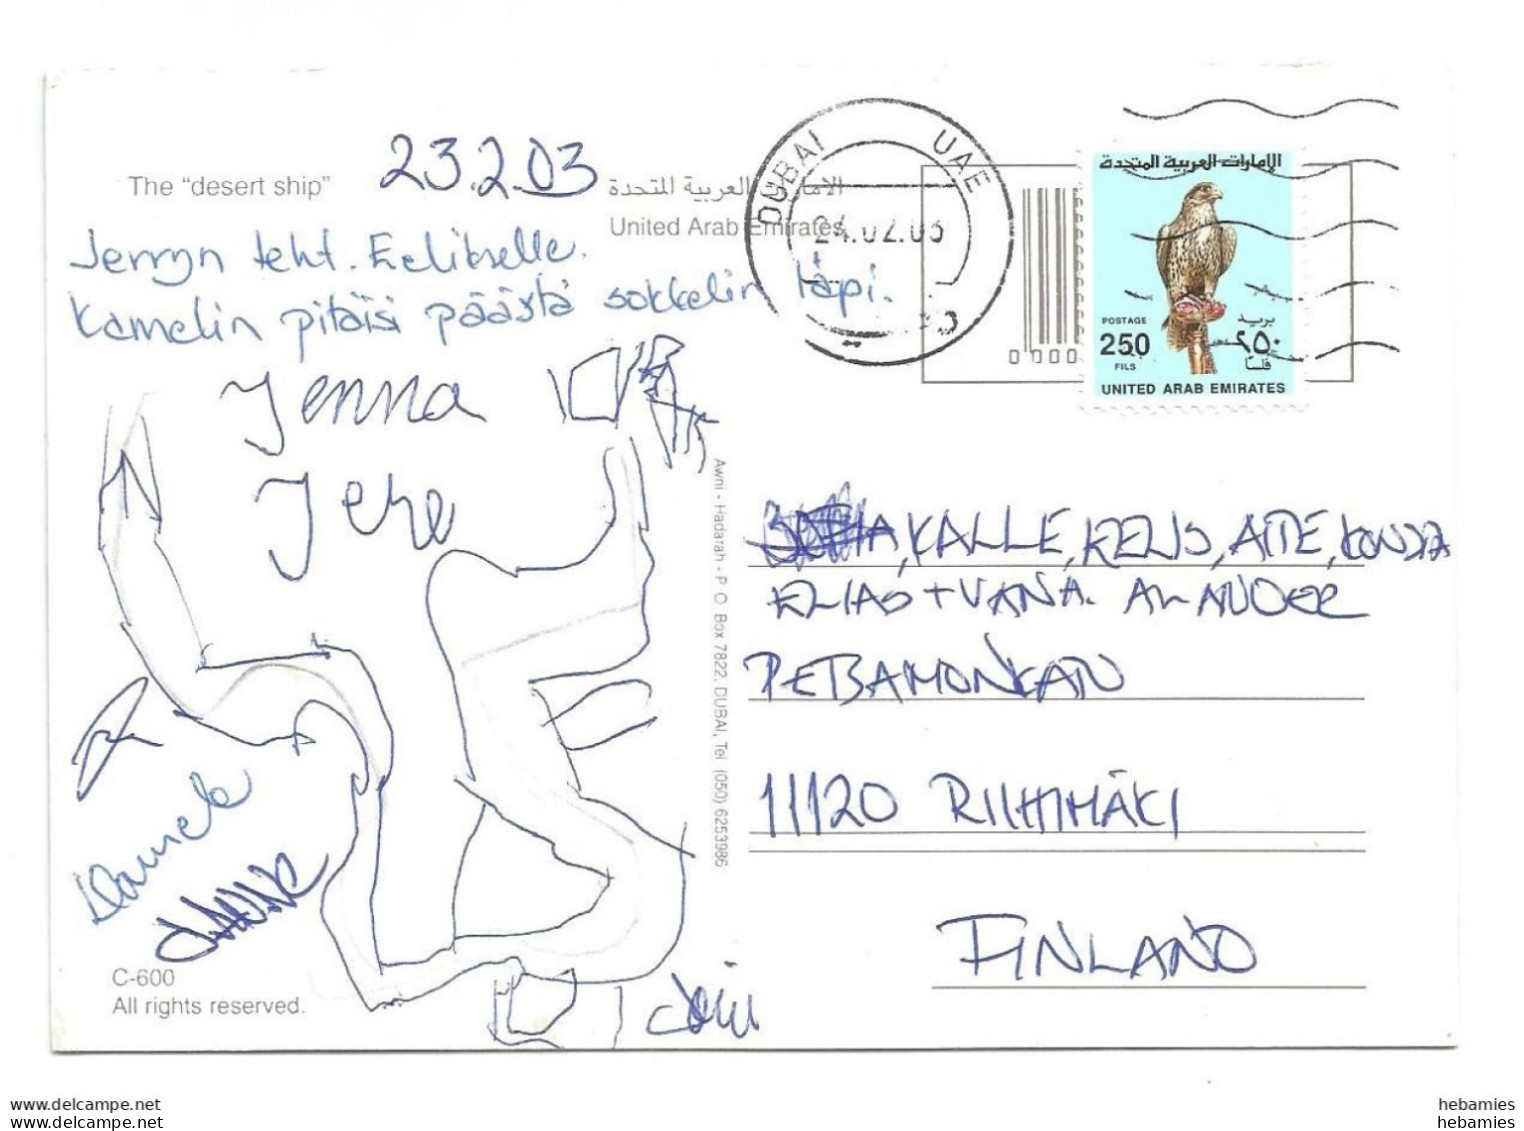 The "desert ship"
23.2.03
الامارات العربية المتحدة
United Arab Emirates
DUBAI UAE
24.02.03
الإمارات العربية المتحدة
POSTAGE
250
FILS
بريد
٢٥٠
فلسا
UNITED ARAB EMIRATES
0000
Jerryn teht. Eelikselle.
Kamelin pitäisi päästä sokkelin läpi.
Jenna
Jere
Awni - Hadarah - P O Box 7822, DUBAI, Tel (050) 6253986
KALLE, EELIS, AITE,
ELIAS + VANA.
PETSAMONKATU
11120 RIIHIMÄKI
FINLAND
C-600
All rights reserved.
Joni
hebamies
hebamies
hebamies
hebamies